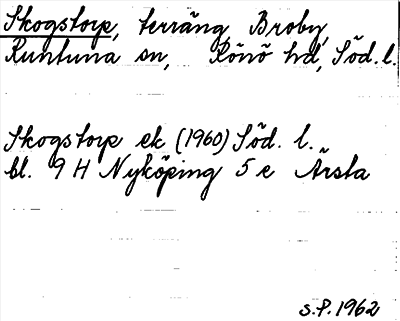 Skogstorp, terräng, Broby,
Runtuna sn, Rönö hd, Söd. l.
Skogstorp ek (1960) Söd. l.
bl. 9 H Nyköping 5 e Årsta
S.P. 1962